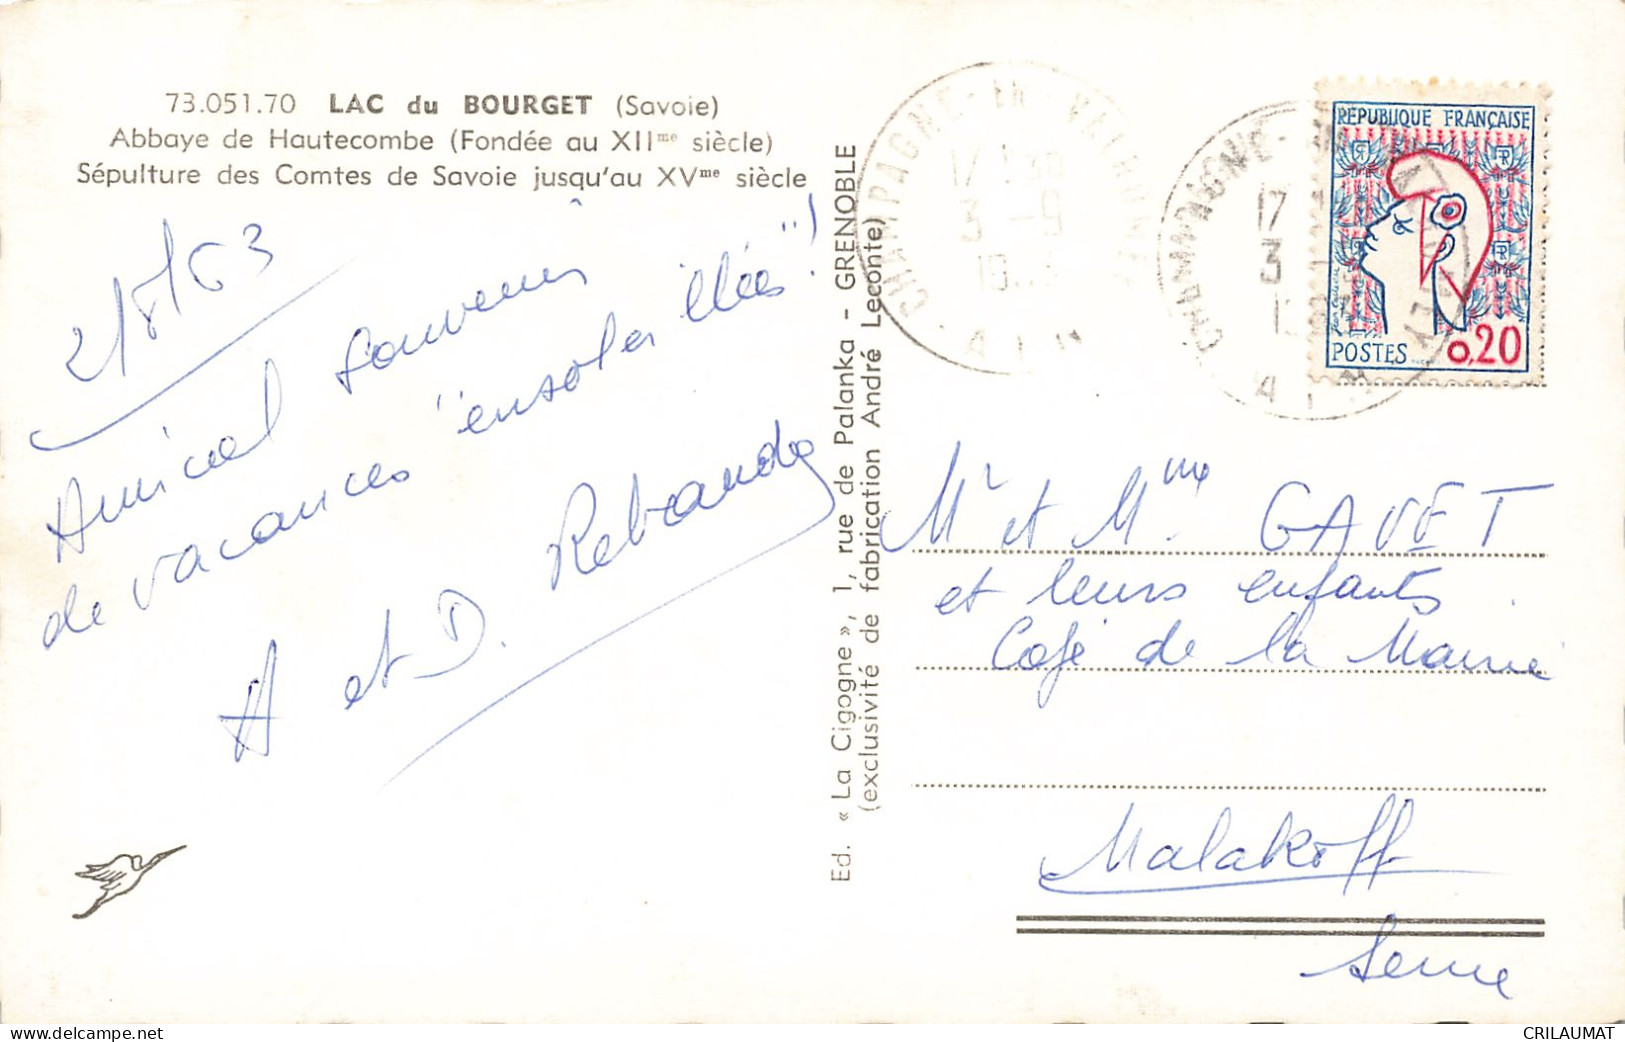 73.051.70 LAC du BOURGET (Savoie)
Abbaye de Hautecombe (Fondée au XIIme siècle)
Sépulture des Comtes de Savoie jusqu'au XVme siècle
2/8/63
Amical souvenir
de vacances "ensoleillées"!
A et D. Rebrandy
Ed. « La Cigogne », 1, rue de Palanka - GRENOBLE
(exclusivité de fabrication André Leconte)
CHAMPAGNE-EN-
17
3 -9
AIN
CHAMPAGNE-
17
3
A
RÉPUBLIQUE FRANÇAISE
POSTES 0,20
Mr et Mme GAVET
et leurs enfants.
Café de la Mairie
Malakoff
Seine
www.delcampe.net
CRILAUMAT